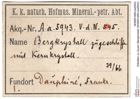 K. k. naturh. Hofmus. Mineral.-petr. Abt.
Akqu.-Nr. A.a.5943. V.d.N. 545.
Name: Bergkrystall zugeschliffen
mit Kernkrystall.
Fundort Dauphiné, Frankr.